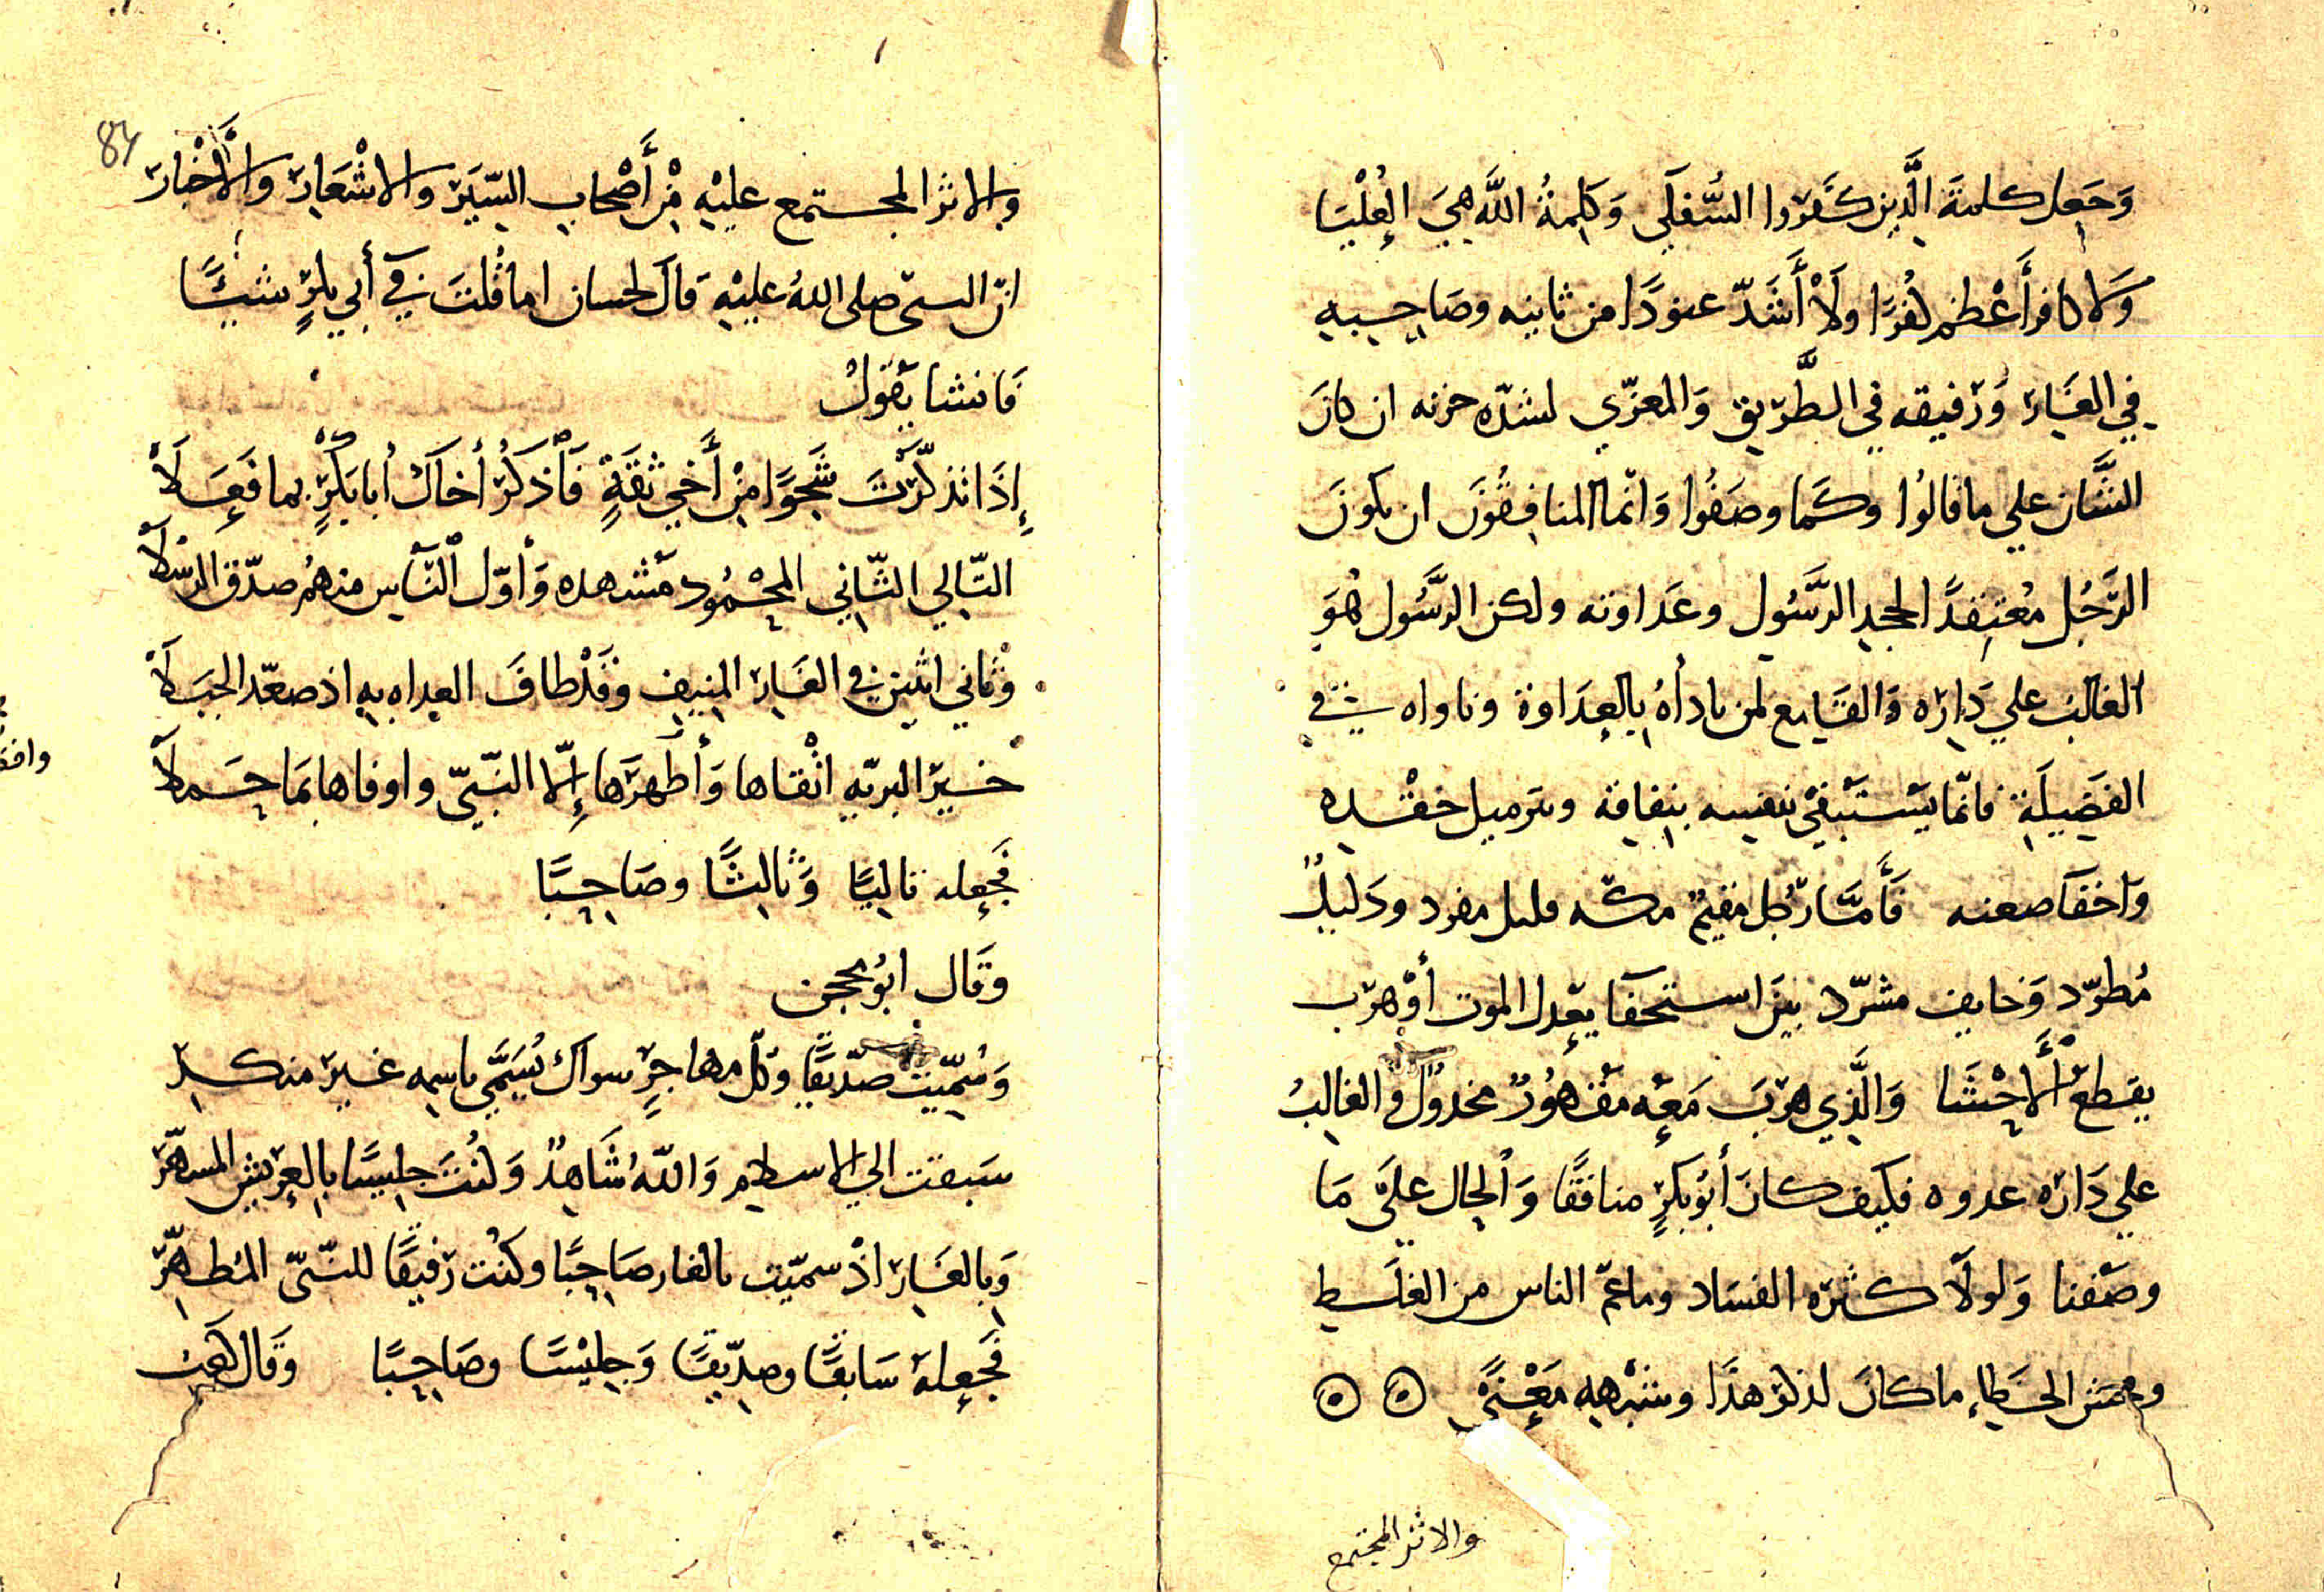 وَجَعل كلمةَ الَّذِين كَفَرُوا السُّفلَي وَكلِمةُ اللَّه هِيَ العُلْيَا
وَلا كافر أَعْظم كُفرًا ولَا أَشَدّ عنودًا من ثانيه وصَاحِبه
في الغَار وَرَفيقه في الطَّرِيق وَالمعزّي لشدّه حزنه ان كانَ
الشَّان علي ما قالُوا وكَما وصَفُوا وَانّما المنافِقُونَ ان يكونَ
الرَّجُل مُعتقِدًا لجحد الرَّسُول وعَداوته ولكن الرَّسُول هُوَ
الغالبُ علي دَارِه وَالقَامع لمن باداُهُ بِالعِدَاوة وناواه في
الفَضِيلَةِ فانّما يَسْتَبْقي نفسه بِنِفاقِه وبترميل حقْده
وَاخفا ضعنه فَأَمَّا رَجُل مقيمٌ مكّه قليل مفرد وذَليلٌ
مُطرّد وَخايف مشرّد بيَن استخفا يَعدِل الموت أَوْ هرَب
يقطعُ الأَحْشَا وَالَّذِي هرَبَ مَعَه مَقْهُورٌ مخذُولٌ والغالِبُ
علي دَاره عدوه فكيف كانَ أَبُو بَكرٍ منافقًا وَالحال علَي مَا
وصَفنا وَلولَا كثره الفسَاد وما عمّ الناس من الغلَط
وفحش الخَطاءِ ما كانَ لذكر هذَا وشبْهِه مَعْنًي ⊙ ⊙
والاثر المجتمع
وِالاثر المجتمع عليْهِ مِنْ أَصْحابِ السِّيَر والاشْعَار وَالأَخْبار
انّ النبيّ صلى اللهُ عليْهِ قالَ لحسان اما قُلتَ في أَبي بكرٍ شيئًا
فَانشا يَقولُ
إِذَا تذكّرْتَ شَجْوًا مِنْ أَخِي ثقَةٍ فَاذكُرْ أَخاكَ أَبا بَكرٍ بما فَعَلَا
التّالي الثّاني المحْمُود مَشهده وَأوّل النَّاس منهمُ صدّق الرسلَا
وْثاني اثنين في الغَارِ المنِيف وَقَدْ طافَ العداه بِه اذ صعّد الجبَلَا
خَيرَ البريّه اتْقاها وَأَطهرَها إِلّا النّبيّ واوفاها بمَا حَمَلا
فَجعله تاليًا وَثالثًا وصَاحِبًا
وقَال ابُو محجن
وَسُمّيتَ صدّيقًا وَكلّ مهاجرٍ سواكَ يُسَمَّي باسمِه غيرَ منكرِ
سَبقت الي الاسلام وَاللّهُ شَاهِدٌ وَكنُتَ جلِيسًا بِالعرِيش المشهّرَ
وَبِالغَار اذْ سميّت بالغار صَاحِبًا وكنُت رَفيقًا للنّبيّ المُطهّرَ
فَجعله سَابقًا وصِدّيقًا وَجلِيْسًا وصَاحِبًا وقَال كَعب
84